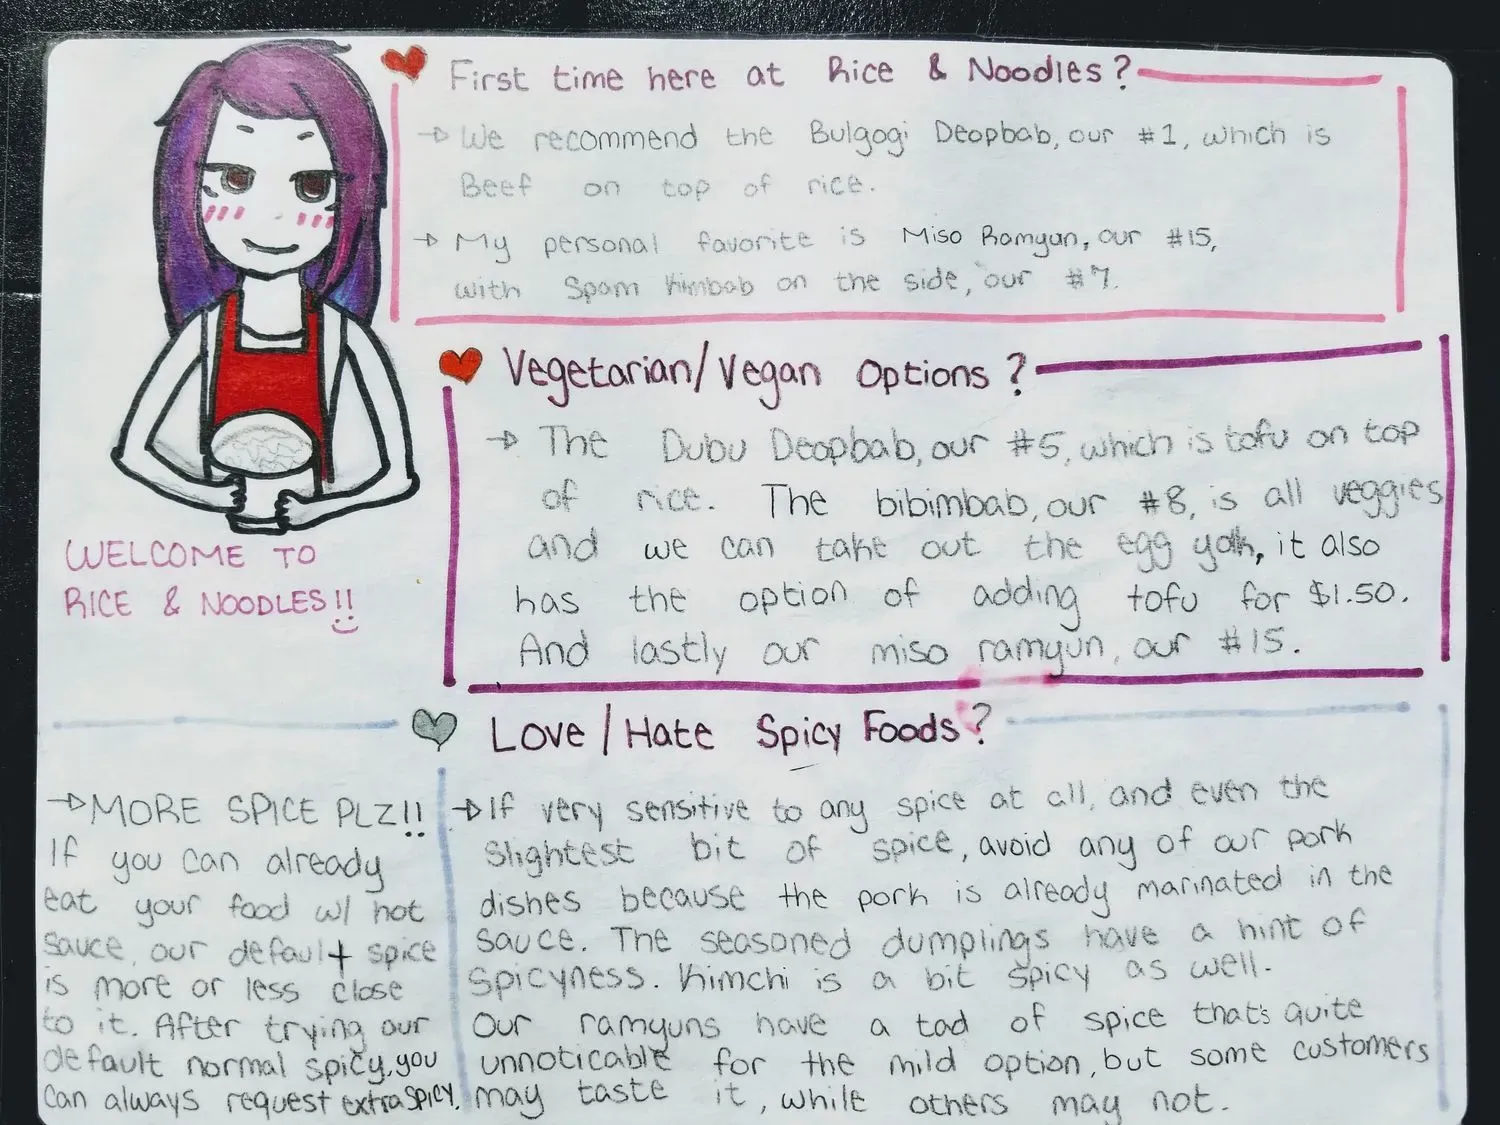 First time here at Rice & Noodles?
→ We recommend the Bulgogi Deopbab, our #1, which is
Beef on top of rice.
→ My personal favorite is Miso Ramyun, our #15,
with Spam Kimbab on the side, our #7.
Vegetarian/Vegan Options?
→ The Dubu Deopbab, our #5, which is tofu on top
of rice. The bibimbab, our #8, is all veggies
and we can take out the egg yolk, it also
has the option of adding tofu for $1.50.
And lastly our miso ramyun, our #15.
WELCOME TO
RICE & NOODLES!!
Love/Hate Spicy Foods?
→ MORE SPICE PLZ!!
If you can already
eat your food w/ hot
sauce, our default spice
is more or less close
to it. After trying our
default normal spicy, you
can always request extra spicy.
→ If very sensitive to any spice at all, and even the
slightest bit of spice, avoid any of our pork
dishes because the pork is already marinated in the
sauce. The seasoned dumplings have a hint of
spicyness. Kimchi is a bit spicy as well.
Our ramyuns have a tad of spice that's quite
unnoticable for the mild option, but some customers
may taste it, while others may not.